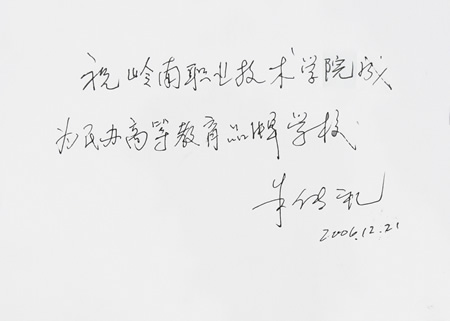 祝岭南职业技术学院成
为民办高等教育品牌学校
朱传礼
2006.12.21